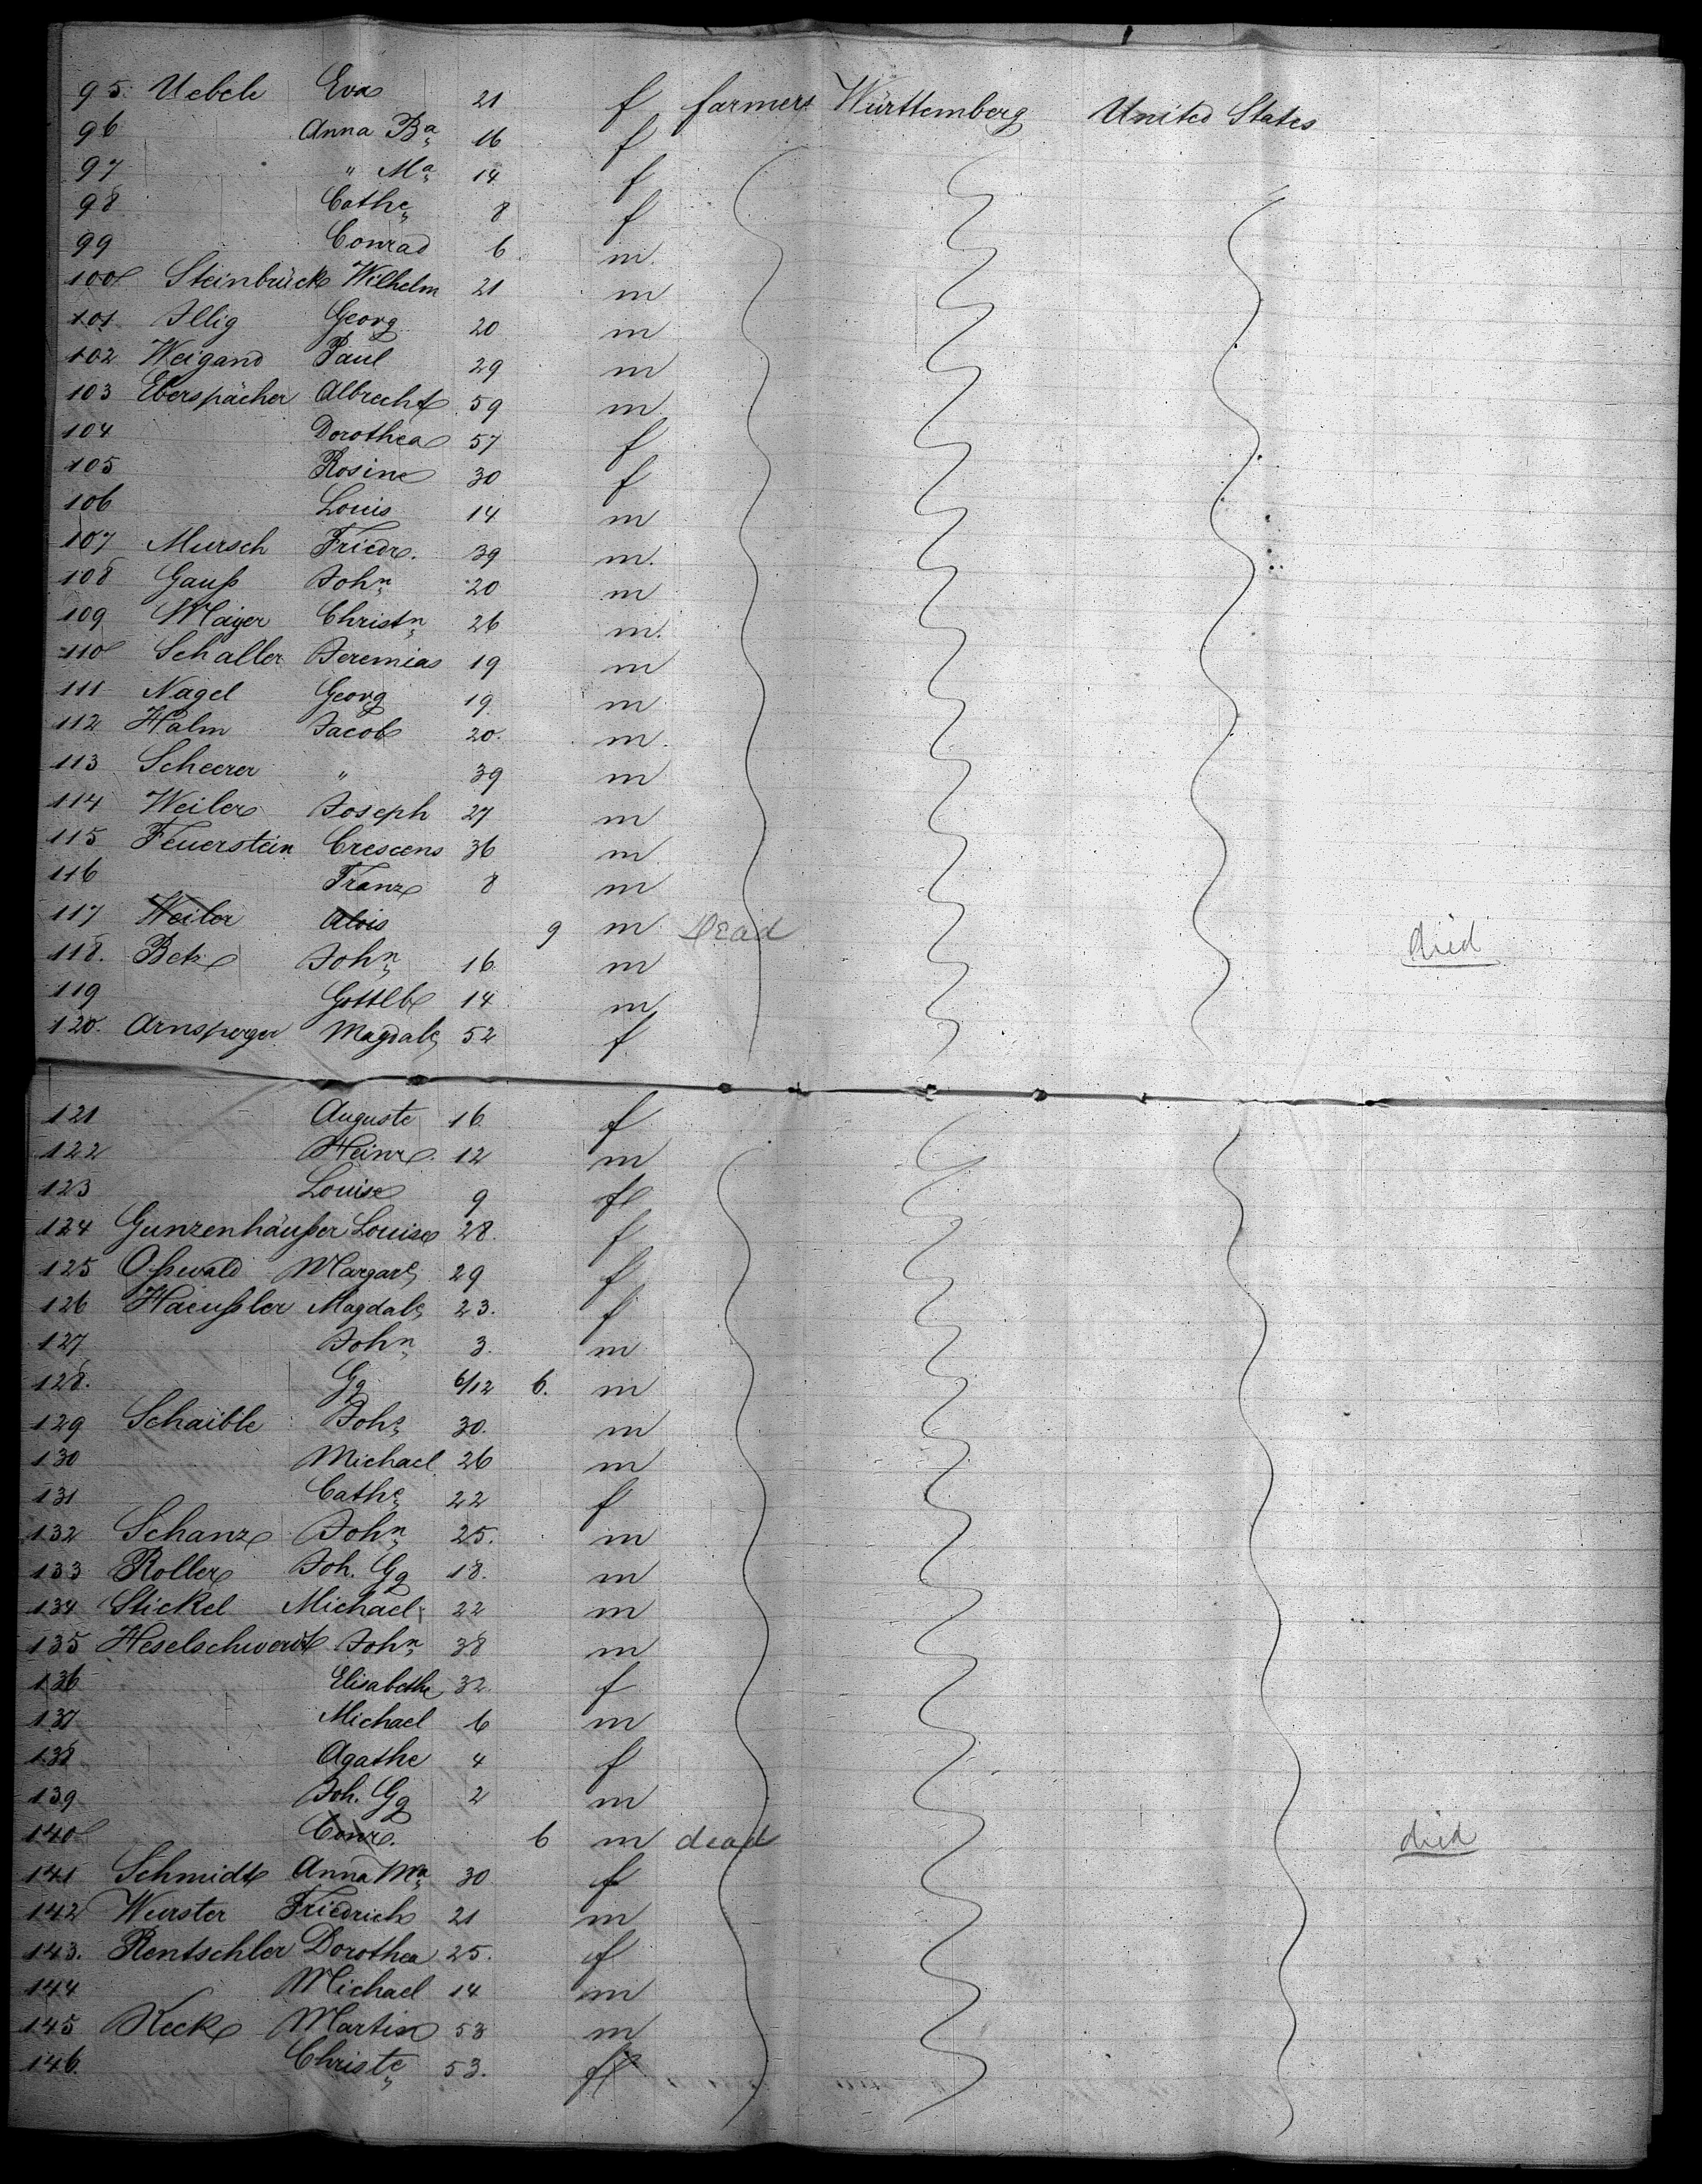 95. Uebele Eva 21 f farmers Württemberg United States
96 Anna Ba 16 f
97 " Ma 14 f
98 Cathe 8 f
99 Conrad 6 m.
100 Steinbrück Wilhelm 21 m
101 Illig Georg 20 m
102 Weigand Paul 29 m
103 Eberspächer Albrecht 59 m
104 Dorothea 57 f
105 Rosine 30 f
106 Louis 14 m
107 Mursch Friedr. 39 m.
108 Gauß John 20 m
109 Mayer Christn 26 m.
110 Schaller Jeremias 19 m
111 Nagel Georg 19 m
112 Halm Jacob 20. m.
113 Scheerer " 39 m
114 Weiler Joseph 27 m
115 Feuerstein Crescens 36 m
116 Franz 8 m
117 Weiler Alois 9 m Dead died
118. Betz John 16 m
119 Gottlb 14 m
120. Arnsperger Magdale 52 f
121 Auguste 16 f
122 Heinr. 12 m
123 Louise 9 f
124 Gunzenhäußer Louise 28. f
125 Oßwald Margare 29 f
126 Haeußler Magdale 23. f
127 John 3. m
128. Gg 6/12 6. m
129 Schaible Johs 30. m
130 Michael 26 m
131 Cathe 22 f
132 Schanz John 25. m
133 Roller Joh. Gg 18. m
134 Stickel Michael 22 m
135 Heselschwerdt John 38 m
136 Elisabethe 32 f
137 Michael 6 m
138 Agathe 4 f
139 Joh. Gg 2 m
140 Conr. 6 m dead died
141 Schmidt Anna Ma 30 f
142 Wurster Friedrich 21 m
143. Rentschler Dorothea 25. f
144 Michael 14 m
145 Keck Martin 53 m
146. Christe 53. f